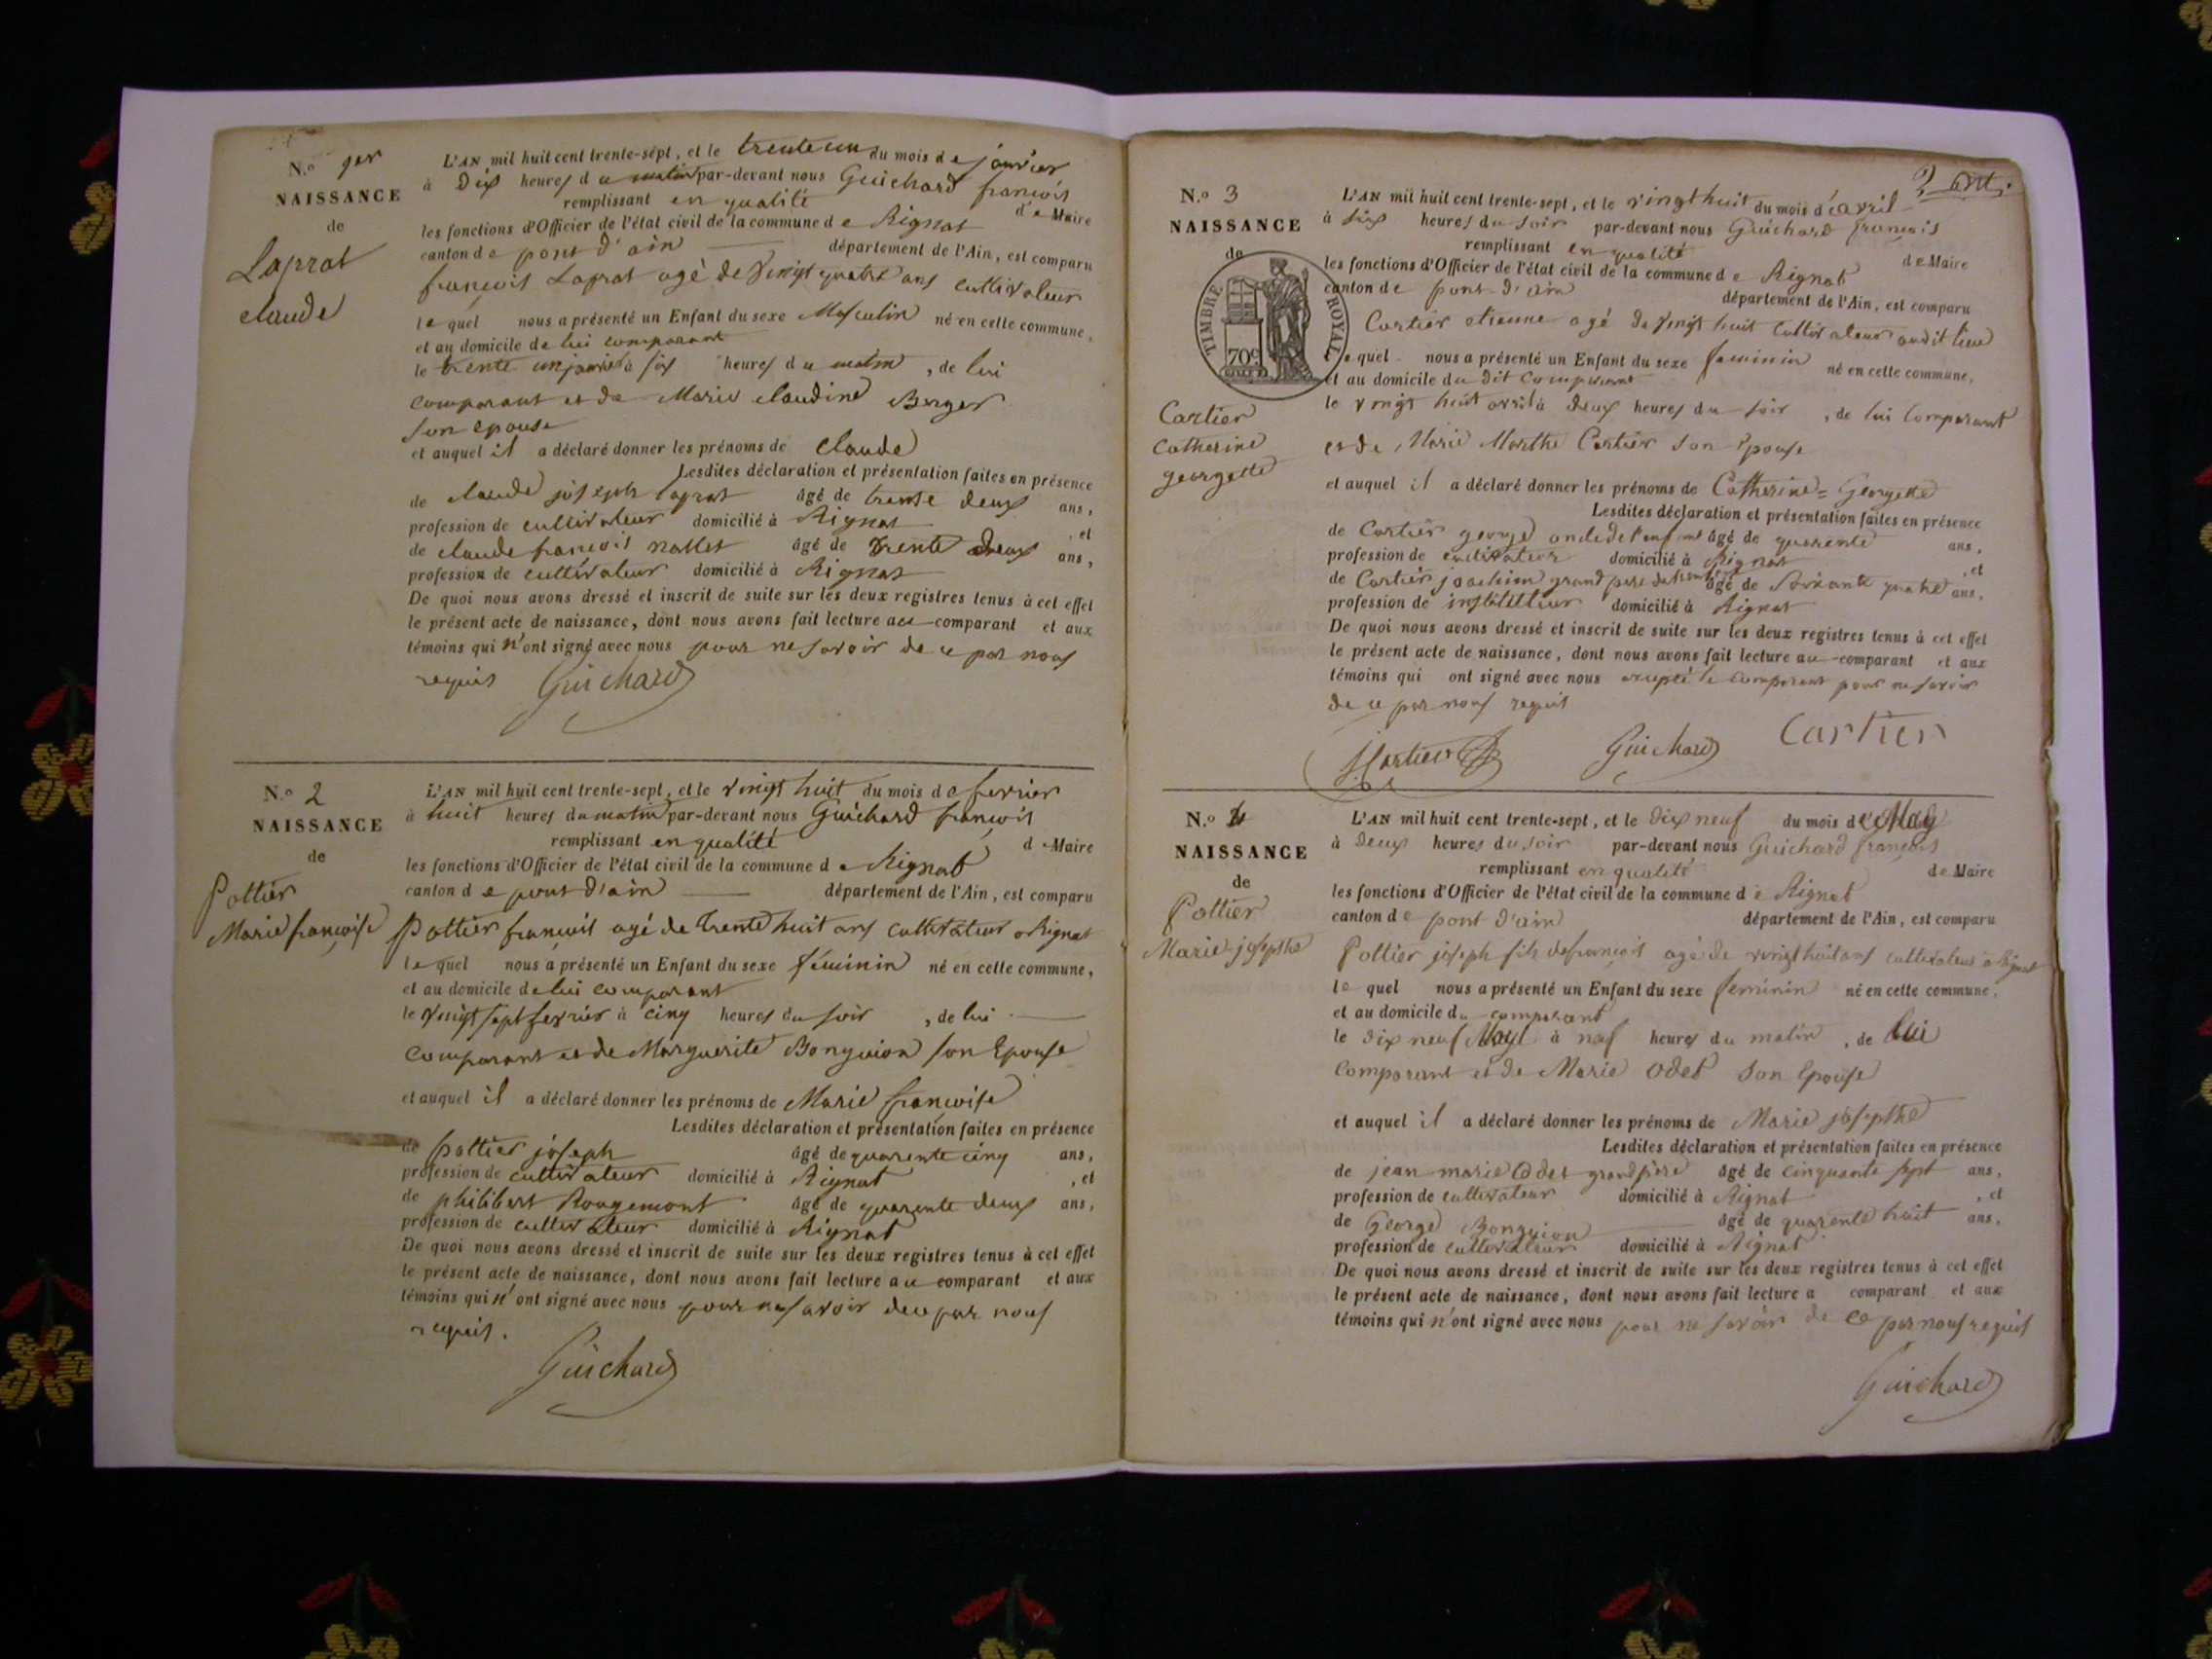 N.o 1er
NAISSANCE
de
Laprat
claude
L'AN mil huit cent trente-sept, et le trente un du mois de janvier
à Dix heures du matin par-devant nous Guichard francois
remplissant en qualité de Maire
les fonctions d'Officier de l'état civil de la commune de Rignat
canton de pont d'ain département de l'Ain, est comparu
françois Laprat agé de Vingt quatre ans cultivateur
lequel nous a présenté un Enfant du sexe Masculin né en cette commune,
et au domicile de lui comparant
le trente un janvier à six heures du matin, de lui
comparant et de Marie claudine Berger
son epouse
et auquel il a déclaré donner les prénoms de claude
Lesdites déclaration et présentation faites en présence
de claude joseph laprat âgé de trente deux ans,
profession de cultivateur domicilié à Rignat, et
de claude francois nallet âgé de trente deux ans,
profession de cultivateur domicilié à Rignat
De quoi nous avons dressé et inscrit de suite sur les deux registres tenus à cet effet
le présent acte de naissance, dont nous avons fait lecture au comparant et aux
témoins qui n'ont signé avec nous pour ne savoir de ce par nous
requis Guichard
N.o 2
NAISSANCE
de
Pottier
Marie françoise
L'AN mil huit cent trente-sept, et le vingt huit du mois de fevrier
à huit heures du matin par-devant nous Guichard françois
remplissant en qualité d Maire
les fonctions d'Officier de l'état civil de la commune de Rignat
canton de pont d'ain département de l'Ain, est comparu
Pottier françois agé de trente huit ans cultivateur a Rignat
lequel nous a présenté un Enfant du sexe féminin né en cette commune,
et au domicile de lui comparant
le vingt sept fevrier à cinq heures du soir, de lui
comparant et de Marguerite Bonguion son Epouse
et auquel il a déclaré donner les prénoms de Marie françoise
Lesdites déclaration et présentation faites en présence
de pottier joseph âgé de quarente cinq ans,
profession de cultivateur domicilié à Rignat, et
de philibert Rougemont âgé de quarente deux ans,
profession de cultivateur domicilié à Rignat
De quoi nous avons dressé et inscrit de suite sur les deux registres tenus à cet effet
le présent acte de naissance, dont nous avons fait lecture au comparant et aux
témoins qui n'ont signé avec nous pour ne savoir de ce par nous
requis.
Guichard
N.o 3
NAISSANCE
de
TIMBRE ROYAL
70c
Cartier
Catherine
georgette
L'AN mil huit cent trente-sept, et le vingt huit du mois d'avril
à six heures du soir par-devant nous Guichard françois
remplissant en qualité de Maire
les fonctions d'Officier de l'état civil de la commune de Rignat
canton de pont-d'ain département de l'Ain, est comparu
Cartier etienne agé de vingt huit cultivateur audit lieu
lequel nous a présenté un Enfant du sexe feminin né en cette commune,
et au domicile du dit comparant
le vingt huit avril à deux heures du soir, de lui Comparant
et de Marie Marthe Cartier son Epouse
et auquel il a déclaré donner les prénoms de Catherine = Georgette
Lesdites déclaration et présentation faites en présence
de Cartier george oncle de l'enfant âgé de quarente ans,
profession de cultivateur domicilié à Rignat, et
de Cartier joachim grand pere de l'enfant âgé de soixante quatre ans,
profession de instituteur domicilié à Rignat
De quoi nous avons dressé et inscrit de suite sur les deux registres tenus à cet effet
le présent acte de naissance, dont nous avons fait lecture au comparant et aux
témoins qui ont signé avec nous excepté le comparant pour ne savoir
de ce par nous requis
J Cartier Guichard Cartier
N.o 4
NAISSANCE
de
Pottier
Marie josepthe
L'AN mil huit cent trente-sept, et le dix neuf du mois de May
à deux heures du soir par-devant nous Guichard françois
remplissant en qualité de Maire
les fonctions d'Officier de l'état civil de la commune de Rignat
canton de pont d'ain département de l'Ain, est comparu
Pottier joseph fils de françois agé de vingt huit ans cultivateur a Rignat
lequel nous a présenté un Enfant du sexe feminin né en cette commune,
et au domicile du comparant
le dix neuf May à neuf heures du matin, de lui
Comparant et de Marie Odet son Epouse
et auquel il a déclaré donner les prénoms de Marie josepthe
Lesdites déclaration et présentation faites en présence
de jean marie Odet grand père âgé de cinquante sept ans,
profession de cultivateur domicilié à Rignat, et
de George Bonguion âgé de quarente huit ans,
profession de cultivateur domicilié à Rignat
De quoi nous avons dressé et inscrit de suite sur les deux registres tenus à cet effet
le présent acte de naissance, dont nous avons fait lecture a comparant et aux
témoins qui n'ont signé avec nous pour ne savoir de ce par nous requis
Guichard